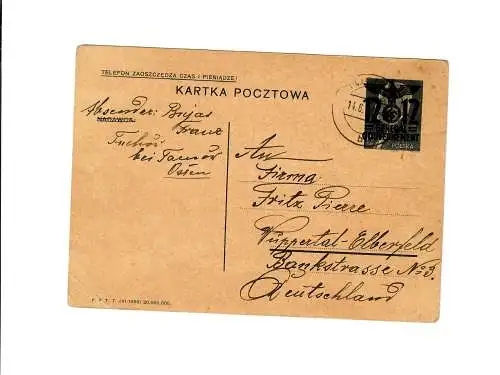 TELEFON ZAOSZCZĘDZA CZAS I PIENIĄDZE!
KARTKA POCZTOWA
Absender: Bujas
NADAWCA:
Franz
Tuchów
bei Tarnów
Osten
14.8.
12 12
GENERAL
GOUVERNEMENT
POLSKA
An
Firma
Fritz Pierre
Wuppertal-Elberfeld
Bankstrasse No 3.
Deutschland